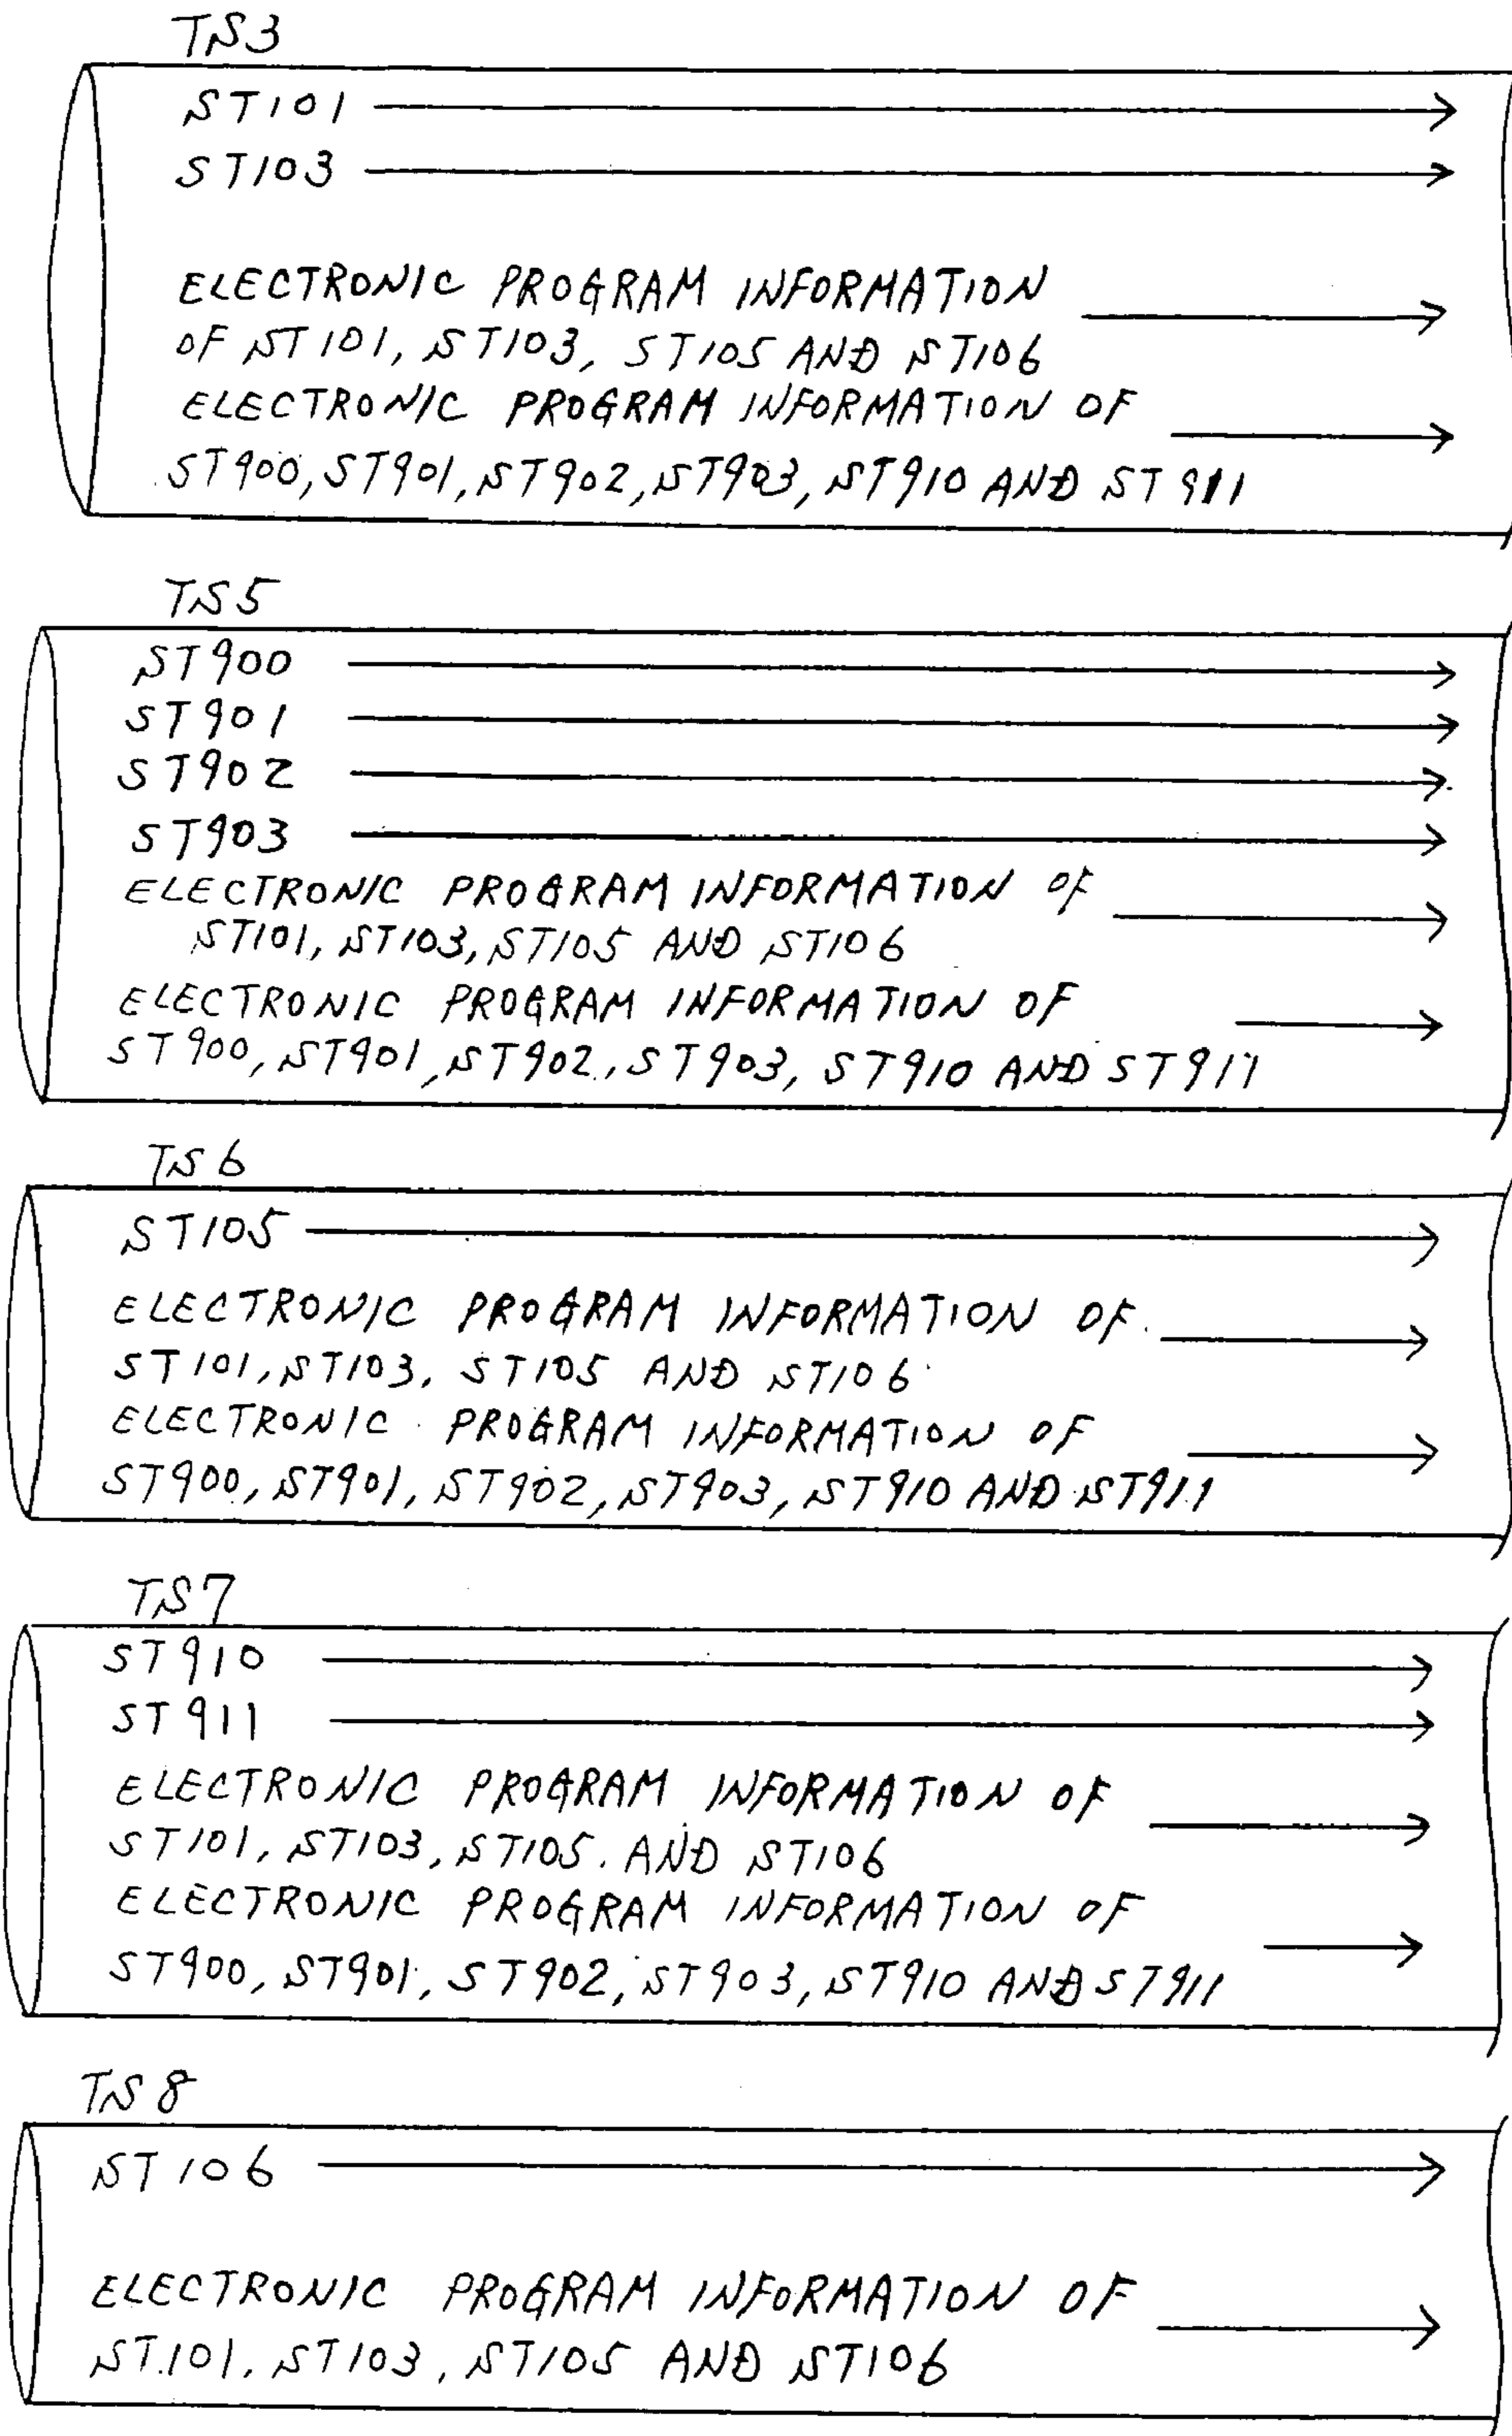 TS3
ST101
ST103
ELECTRONIC PROGRAM INFORMATION
OF ST101, ST103, ST105 AND ST106
ELECTRONIC PROGRAM INFORMATION OF
ST900, ST901, ST902, ST903, ST910 AND ST911
TS5
ST900
ST901
ST902
ST903
ELECTRONIC PROGRAM INFORMATION OF
ST101, ST103, ST105 AND ST106
ELECTRONIC PROGRAM INFORMATION OF
ST900, ST901, ST902, ST903, ST910 AND ST911
TS6
ST105
ELECTRONIC PROGRAM INFORMATION OF
ST101, ST103, ST105 AND ST106
ELECTRONIC PROGRAM INFORMATION OF
ST900, ST901, ST902, ST903, ST910 AND ST911
TS7
ST910
ST911
ELECTRONIC PROGRAM INFORMATION OF
ST101, ST103, ST105. AND ST106
ELECTRONIC PROGRAM INFORMATION OF
ST900, ST901, ST902, ST903, ST910 AND ST911
TS8
ST106
ELECTRONIC PROGRAM INFORMATION OF
ST101, ST103, ST105 AND ST106